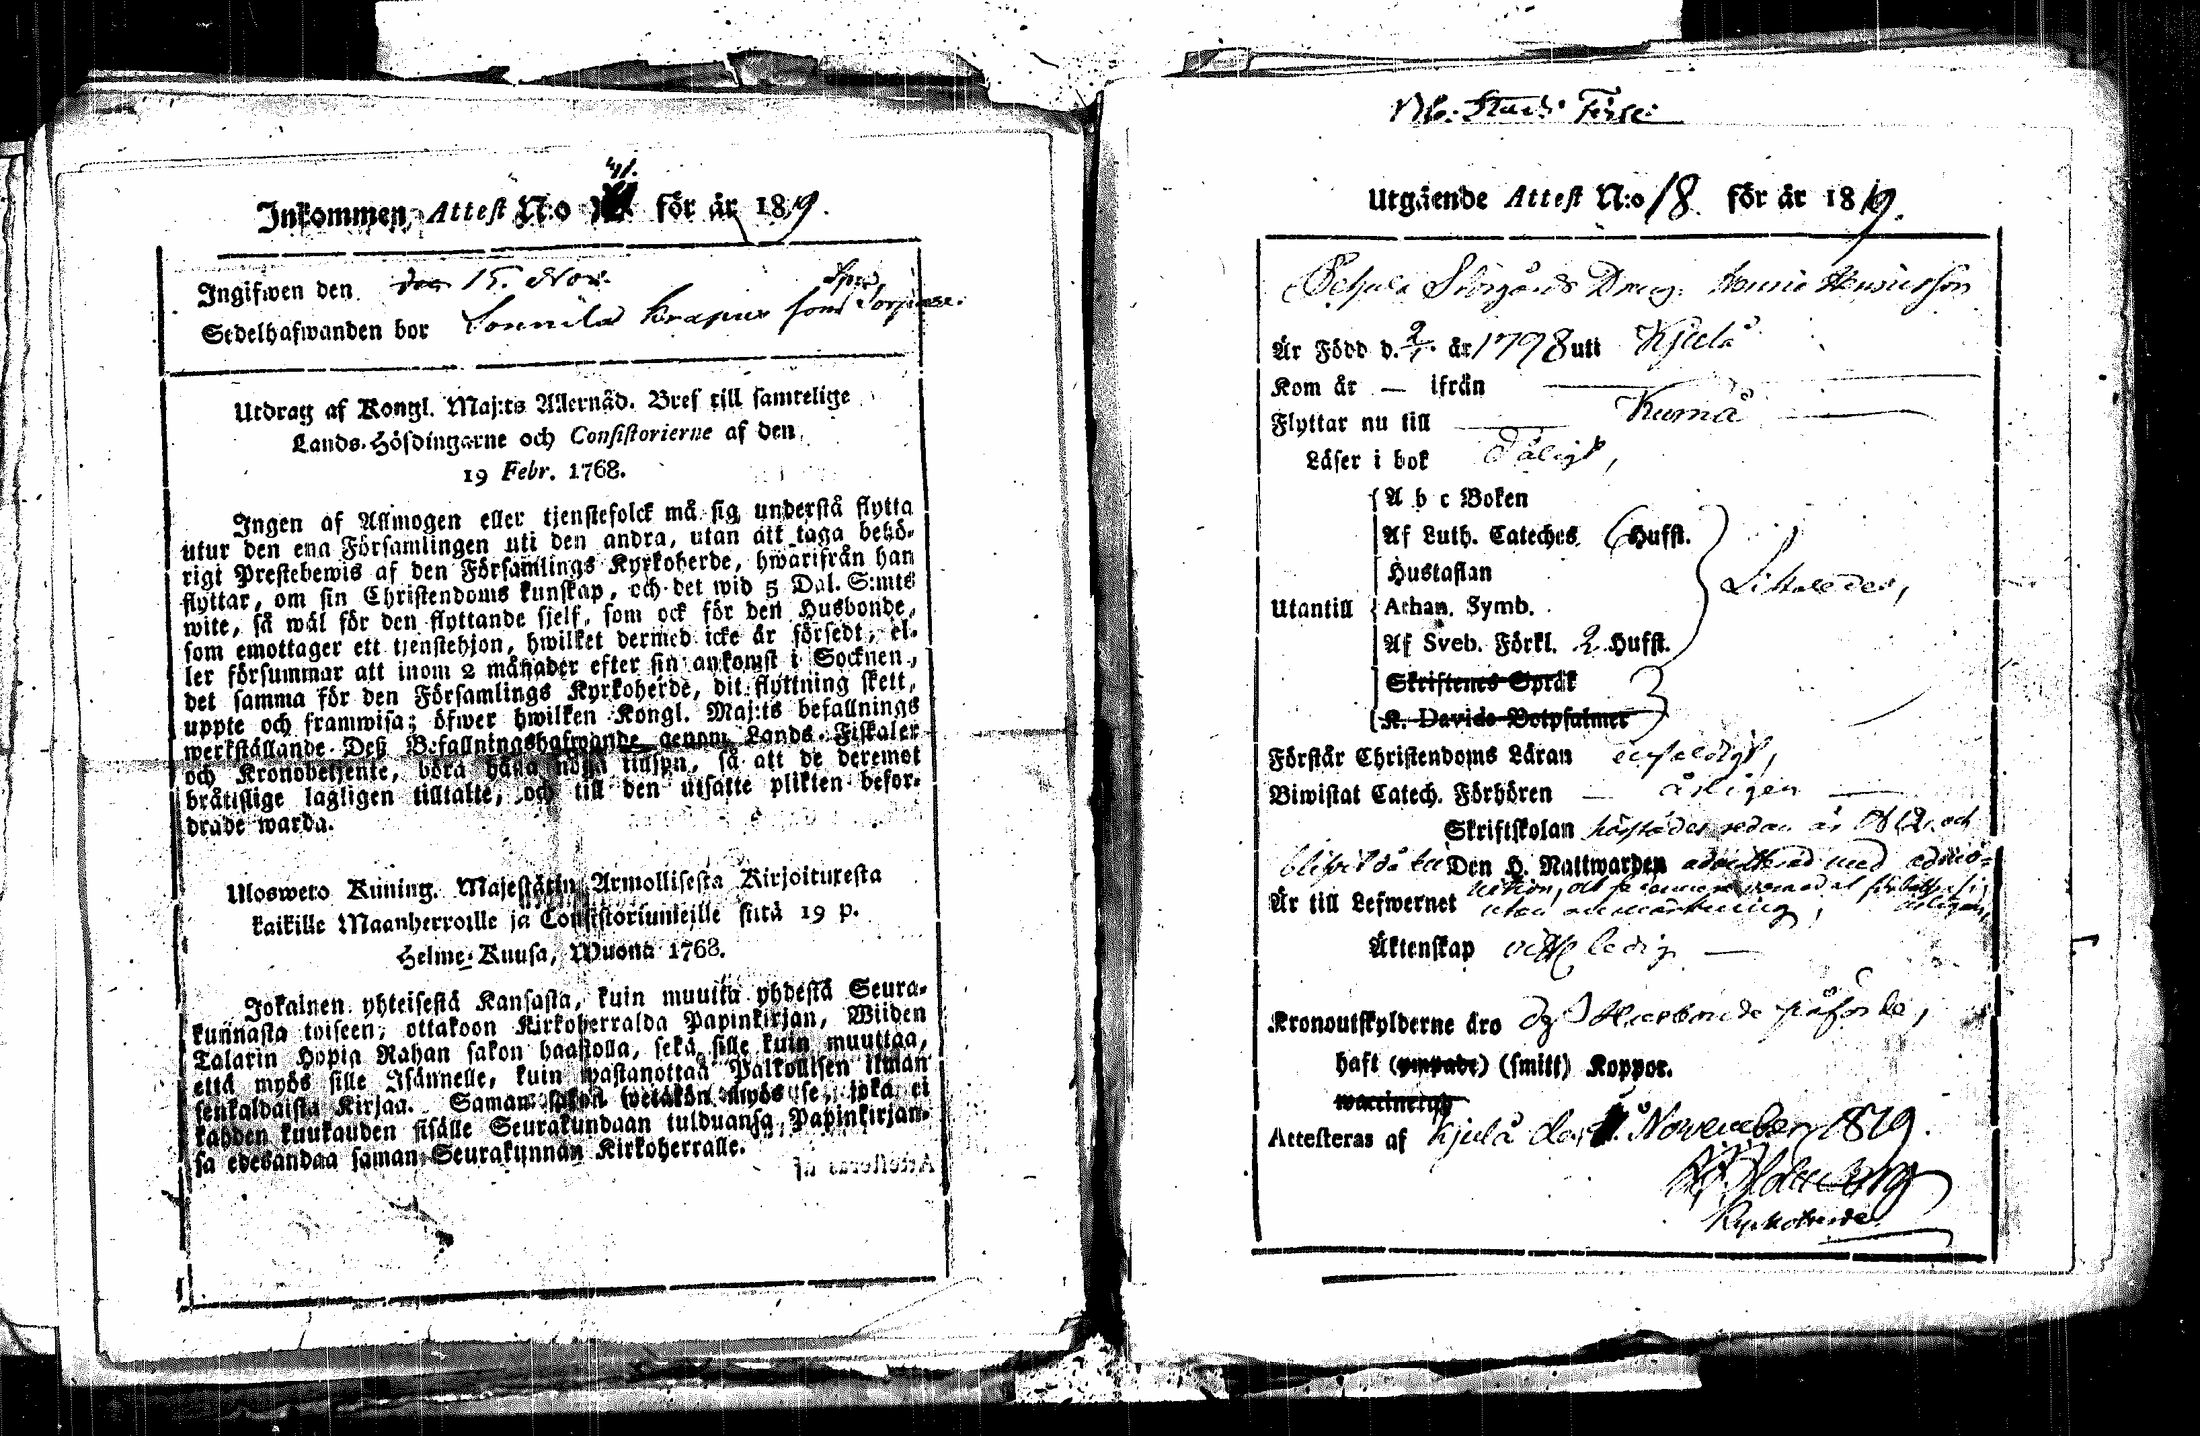 41.
Inkommen Attest N:o för år 1819.
Ingifwen den 15. Nov.
Sedelhafwanden bor Sonnila som
Utdrag af Kongl. Maj:ts Allernåd. Bref till samtelige
Lands-Höfdingarne och Consistorierne af den
19 Febr. 1768.
Ingen af Allmogen eller tjenstefolck må sig understå flytta
utur den ena Församlingen uti den andra, utan att taga behö-
rigt Prestebewis af den Församlings Kyrkoherde, hwarifrån han
flyttar, om sin Christendoms kunskap, och det wid 5 Dal. S:mts
wite, så wäl för den flyttande sjelf, som ock för den Husbonde,
som emottager ett tjenstehjon, hwilket dermed icke är försedt, el-
ler försummar att inom 2 månader efter sin ankomst i Socknen,
det samma för den Församlings Kyrkoherde, dit flyttning skett,
uppte och framwisa; öfwer hwilken Kongl. Maj:ts befallnings
werkställande Deß Befallningshafwande genom Lands-Fiskaler
och Kronobetjente, böra hafwa nöga tillsyn, så att de deremot
bråttslige lagligen tilltalte, och till den utsatte plikten befor-
drade warda.
Ulosweto Kuning. Majestätin Armollisesta Kirjoituxesta
kaikille Maanherroille ja Consistoriumeille siitä 19 p.
Helme-Kuusa, Wuona 1768.
Jokainen yhteisestä Kansasta, kuin muutta yhdestä Seura-
kunnasta toiseen, ottakoon Kirkoherralda Papinkirjan, Wiiden
Talarin Hopia Rahan sakon haastolla, sekä sille kuin muuttaa,
että myös sille Isännelle, kuin wastanottaa Palkollisen ilman
senkaldaista Kirjaa. Saman sakon wetäkön myös se, joka ei
kahden kuukauden sisälle Seurakundaan tulduansa Papinkirjan-
sa edesandaa saman Seurakunnan Kirkoherralle.
Utgående Attest N:o 18 för år 1819.
Storgårds Dräng Henricsson
Är Född d. 2/1 år 1798 uti Kjulå
Kom år — ifrån
Flyttar nu till Kumå
Läser i bok dåligt,
A b c Boken
Af Luth. Cateches 6 Hufst.
Hustaflan
Utantill Athan. Symb. Likaledes,
Af Sveb. Förkl. 2 Hufst.
Skriftenes Språk
K. Davids Botpsalmer
Förstår Christendoms Läran enfaldigt,
Biwistat Catech. Förhören — årligen —
Skriftskolan redan år och
Den H. Nattwarden admitterad med
Är till Lefwernet utan anmärkning,
Äktenskap ledig —
Kronoutskylderne äro Husbonde påförde,
haft (ympade) (smitt) Koppor.
waccinerad
Attesteras af Kjulå den November 1819.
Kyrkoherde